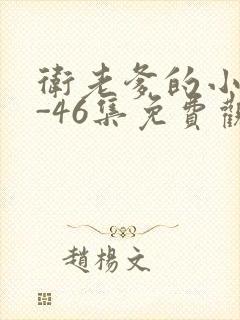 衛老爹的小
-46集免費觀
趙楊文